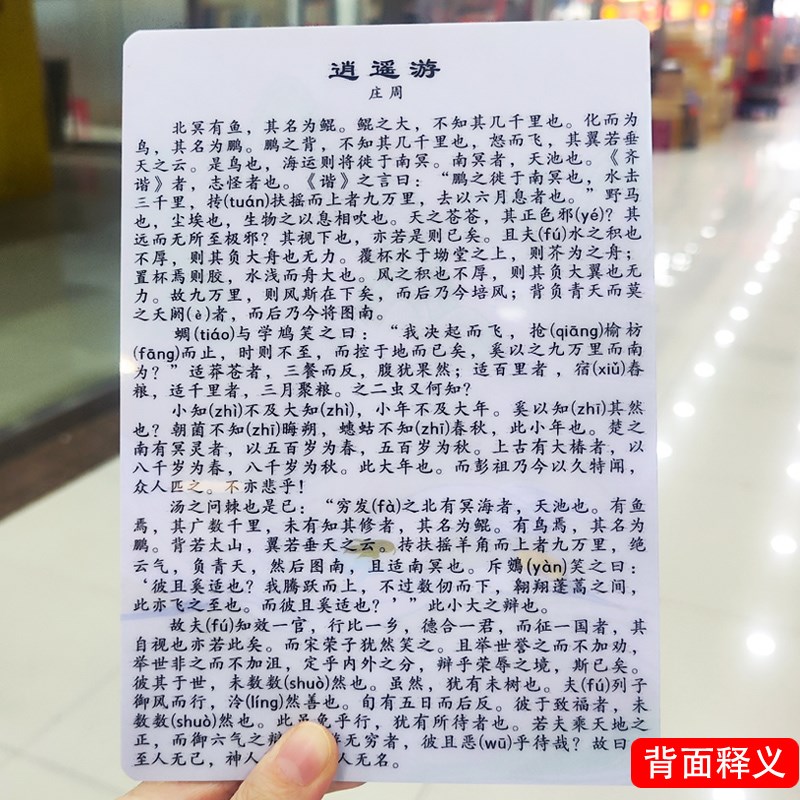 逍遥游
庄周
北冥有鱼，其名为鲲。鲲之大，不知其几千里也。化而为
鸟，其名为鹏。鹏之背，不知其几千里也，怒而飞，其翼若垂
天之云。是鸟也，海运则将徙于南冥。南冥者，天池也。《齐
谐》者，志怪者也。《谐》之言曰：“鹏之徙于南冥也，水击
三千里，抟(tuán)扶摇而上者九万里，去以六月息者也。”野马
也，尘埃也，生物之以息相吹也。天之苍苍，其正色邪(yé)？其
远而无所至极邪？其视下也，亦若是则已矣。且夫(fú)水之积也
不厚，则其负大舟也无力。覆杯水于坳堂之上，则芥为之舟；
置杯焉则胶，水浅而舟大也。风之积也不厚，则其负大翼也无
力。故九万里，则风斯在下矣，而后乃今培风；背负青天而莫
之夭阏(è)者，而后乃今将图南。
蜩(tiáo)与学鸠笑之曰：“我决起而飞，抢(qiāng)榆枋
(fāng)而止，时则不至，而控于地而已矣，奚以之九万里而南
为？”适莽苍者，三餐而反，腹犹果然；适百里者，宿(xiǔ)舂
粮，适千里者，三月聚粮。之二虫又何知？
小知(zhì)不及大知(zhì)，小年不及大年。奚以知(zhī)其然
也？朝菌不知(zhī)晦朔，蟪蛄不知(zhī)春秋，此小年也。楚之
南有冥灵者，以五百岁为春，五百岁为秋。上古有大椿者，以
八千岁为春，八千岁为秋。此大年也。而彭祖乃今以久特闻，
众人匹之。不亦悲乎！
汤之问棘也是已：“穷发(fà)之北有冥海者，天池也。有鱼
焉，其广数千里，未有知其修者，其名为鲲。有鸟焉，其名为
鹏。背若太山，翼若垂天之云。抟扶摇羊角而上者九万里，绝
云气，负青天，然后图南，且适南冥也。斥鴳(yàn)笑之曰：
‘彼且奚适也？我腾跃而上，不过数仞而下，翱翔蓬蒿之间，
此亦飞之至也。而彼且奚适也？’”此小大之辩也。
故夫(fú)知效一官，行比一乡，德合一君，而征一国者，其
自视也亦若此矣。而宋荣子犹然笑之。且举世誉之而不加劝，
举世非之而不加沮，定乎内外之分，辩乎荣辱之境，斯已矣。
彼其于世，未数数(shuò)然也。虽然，犹有未树也。夫(fú)列子
御风而行，泠(líng)然善也。旬有五日而后反。彼于致福者，未
数数(shuò)然也。此虽免乎行，犹有所待者也。若夫乘天地之
正，而御六气之辩 无穷者，彼且恶(wū)乎待哉？故曰
至人无己，神人 人无名。
背面释义